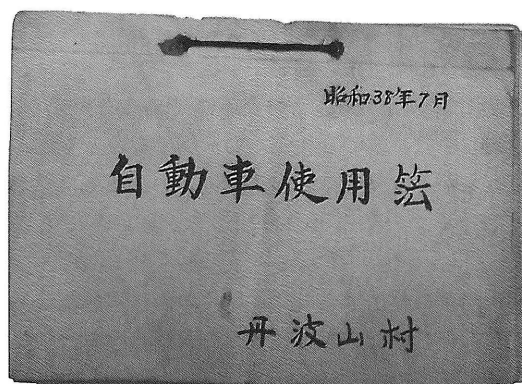 昭和38年7月
自動車使用簿
丹波山村